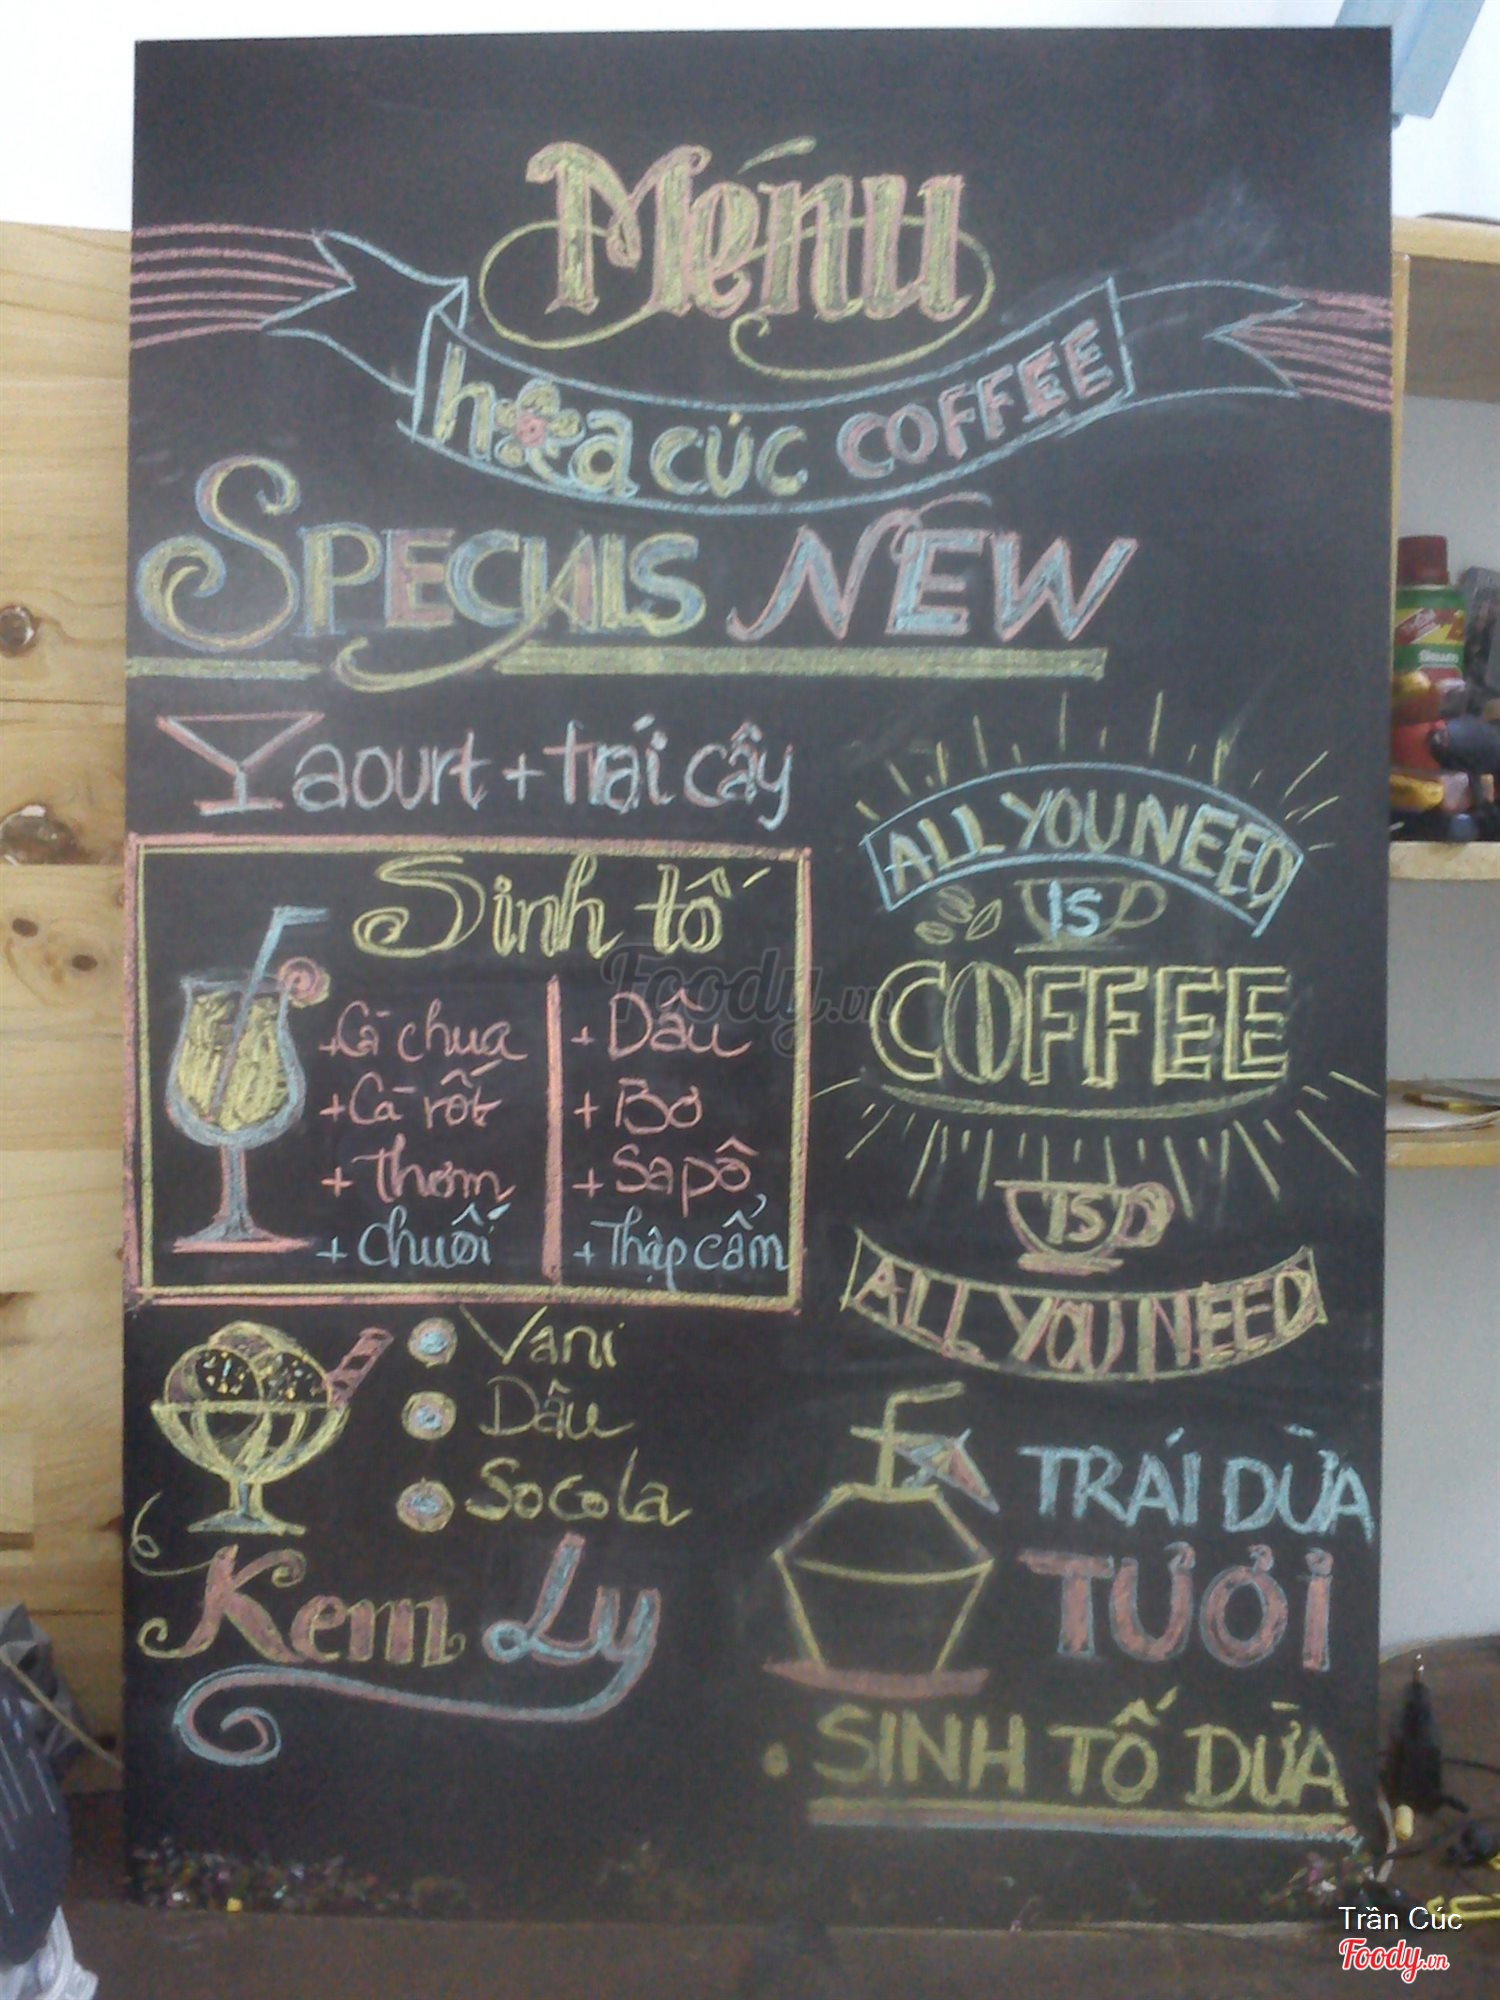 Ménu
hoa cúc COFFEE
SPECIALS NEW
Yaourt + trái cây
Sinh tố
+ Cà chua
+ Cà rốt
+ Thơm
+ Chuối
+ Dâu
+ Bơ
+ Sapô
+ Thập cẩm
Vani
Dâu
Socola
Kem Ly
ALL YOU NEED
IS
COFFEE
IS
ALL YOU NEED
TRÁI DỪA
TƯƠI
• SINH TỐ DỪA
Foody.vn
Trần Cúc
Foody.vn